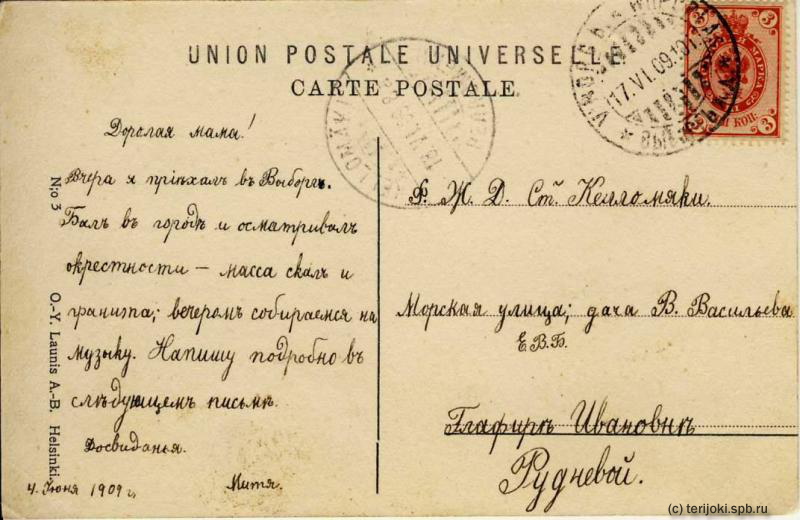 UNION POSTALE UNIVERSELLE
CARTE POSTALE
Дорогая мама!
Вчера я пріѣхалъ въ Выборгъ.
Былъ въ городѣ и осматривалъ
окрестности — масса скалъ и
гранита; вечеромъ собираемся на
музыку. Напишу подробно въ
слѣдующемъ письмѣ.
Досвиданья.
4. Іюня 1909 г. Митя.
N:o 3 O.-Y. Launis A.-B. Helsinki.
KELLOMÄKI
17.VI.09
3 3
МАРКА
КОП.
3 3
Ф. Ж. Д. Ст. Келломяки.
Морская улица; дача В. Васильева
Е.В.Б.
Глафирѣ Ивановнѣ
Рудневой.
(c) terijoki.spb.ru